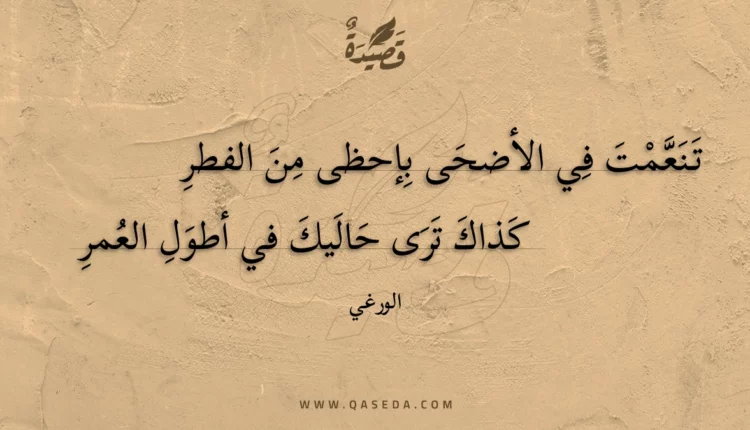 قَصِيدَةٌ
تَنَعَّمْتَ فِي الأضحَى بِإحظى مِنَ الفطرِ
كَذاكَ تَرَى حَالَيكَ في أطوَلِ العُمرِ
الورغي
WWW.QASEDA.COM